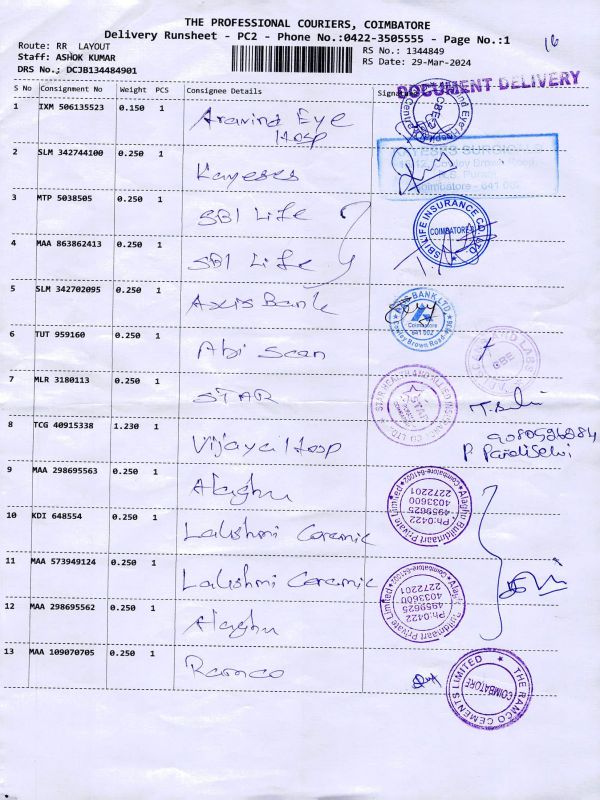 THE PROFESSIONAL COURIERS, COIMBATORE
Delivery Runsheet - PC2 - Phone No.:0422-3505555 - Page No.:1
16
Route: RR LAYOUT
RS No.: 1344849
Staff: ASHOK KUMAR
RS Date: 29-Mar-2024
DRS No.; DCJB134484901
DOCUMENT DELIVERY
S No Consignment No Weight PCS Consignee Details Signature
1 IXM 506135523 0.150 1 Aravind Eye Hosp
2 SLM 342744100 0.250 1 Kayeses
Cowley Brown Road,
R.S. Puram
Coimbatore - 641 002
3 MTP 5038505 0.250 1 SBI Life
SBI LIFE INSURANCE CO. LTD
COIMBATORE
4 MAA 863862413 0.250 1 SBI Life
5 SLM 342702095 0.250 1 Axis Bank
AXIS BANK LTD
Coimbatore
641 002
Cowley Brown Road
6 TUT 959160 0.250 1 Abi Scan
CBE
7 MLR 3180113 0.250 1 STAR
STAR HEALTH AND ALLIED INSURANCE CO. LTD.
8 TCG 40915338 1.230 1 Vijaya Hosp
P. Pandiselvi
9 MAA 298695563 0.250 1 Alaghu
Alaghu Buildmaart Private Limited
Coimbatore-641002
Ph:0422
4959625
4033600
2272201
10 KDI 648554 0.250 1 Lakshmi Ceramic
11 MAA 573949124 0.250 1 Lakshmi Ceramic
Alaghu Buildmaart Private Limited
Coimbatore-641002
Ph:0422
4959625
4033600
2272201
12 MAA 298695562 0.250 1 Alaghu
13 MAA 109070705 0.250 1 Ramco
THE RAMCO CEMENTS LIMITED
COIMBATORE